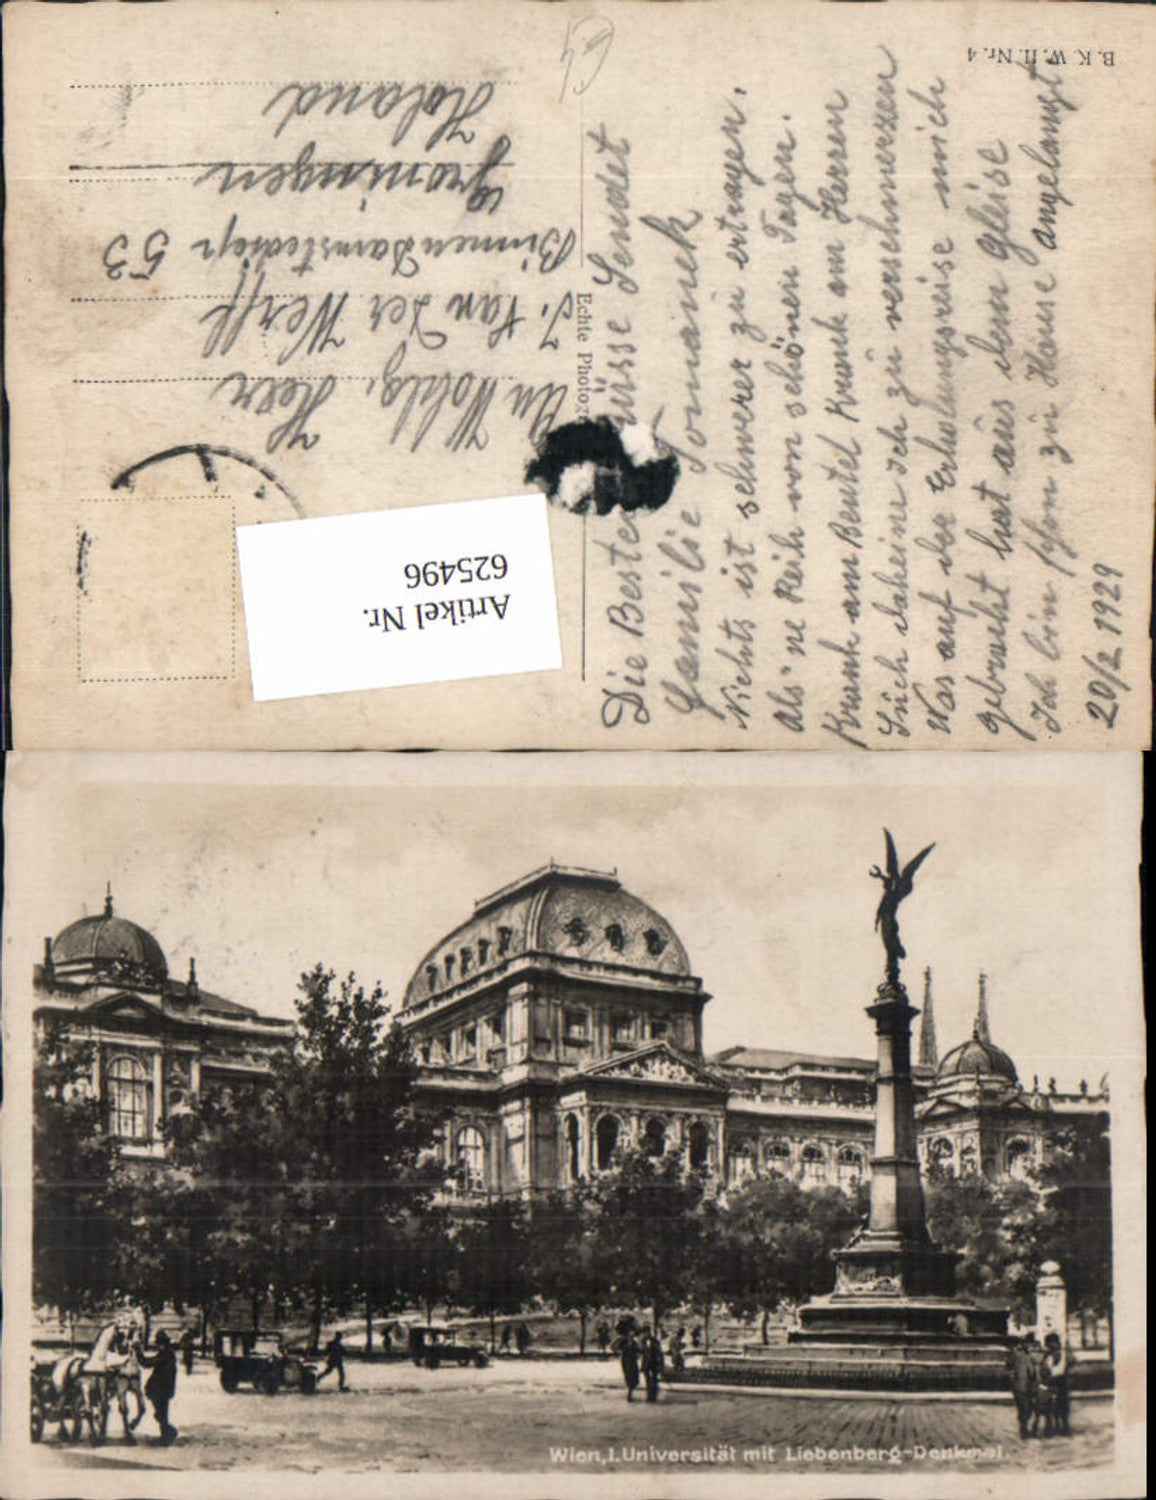 B. K. W. II. Nr. 4
Echte Photogr
Die Beste üsse Sendet
Familie Tomanek
Nichts ist schwerer zu ertragen.
Als 'ne Reih von schönen Tagen.
Krank am Beutel Krank am Herzen
Such daheine ich zu verschmerzen
Was auf der Erholungsreise mich
gebracht hat aus dem gleise
Ich bin schon zu Hause angelangt
20/2 1929
An Wohlg, Heer
J. Van Der Werff
Binnen Damsterdiep 53
Groningen
Holand
Artikel Nr.
625496
Wien, I. Universität mit Liebenberg-Denkmal.